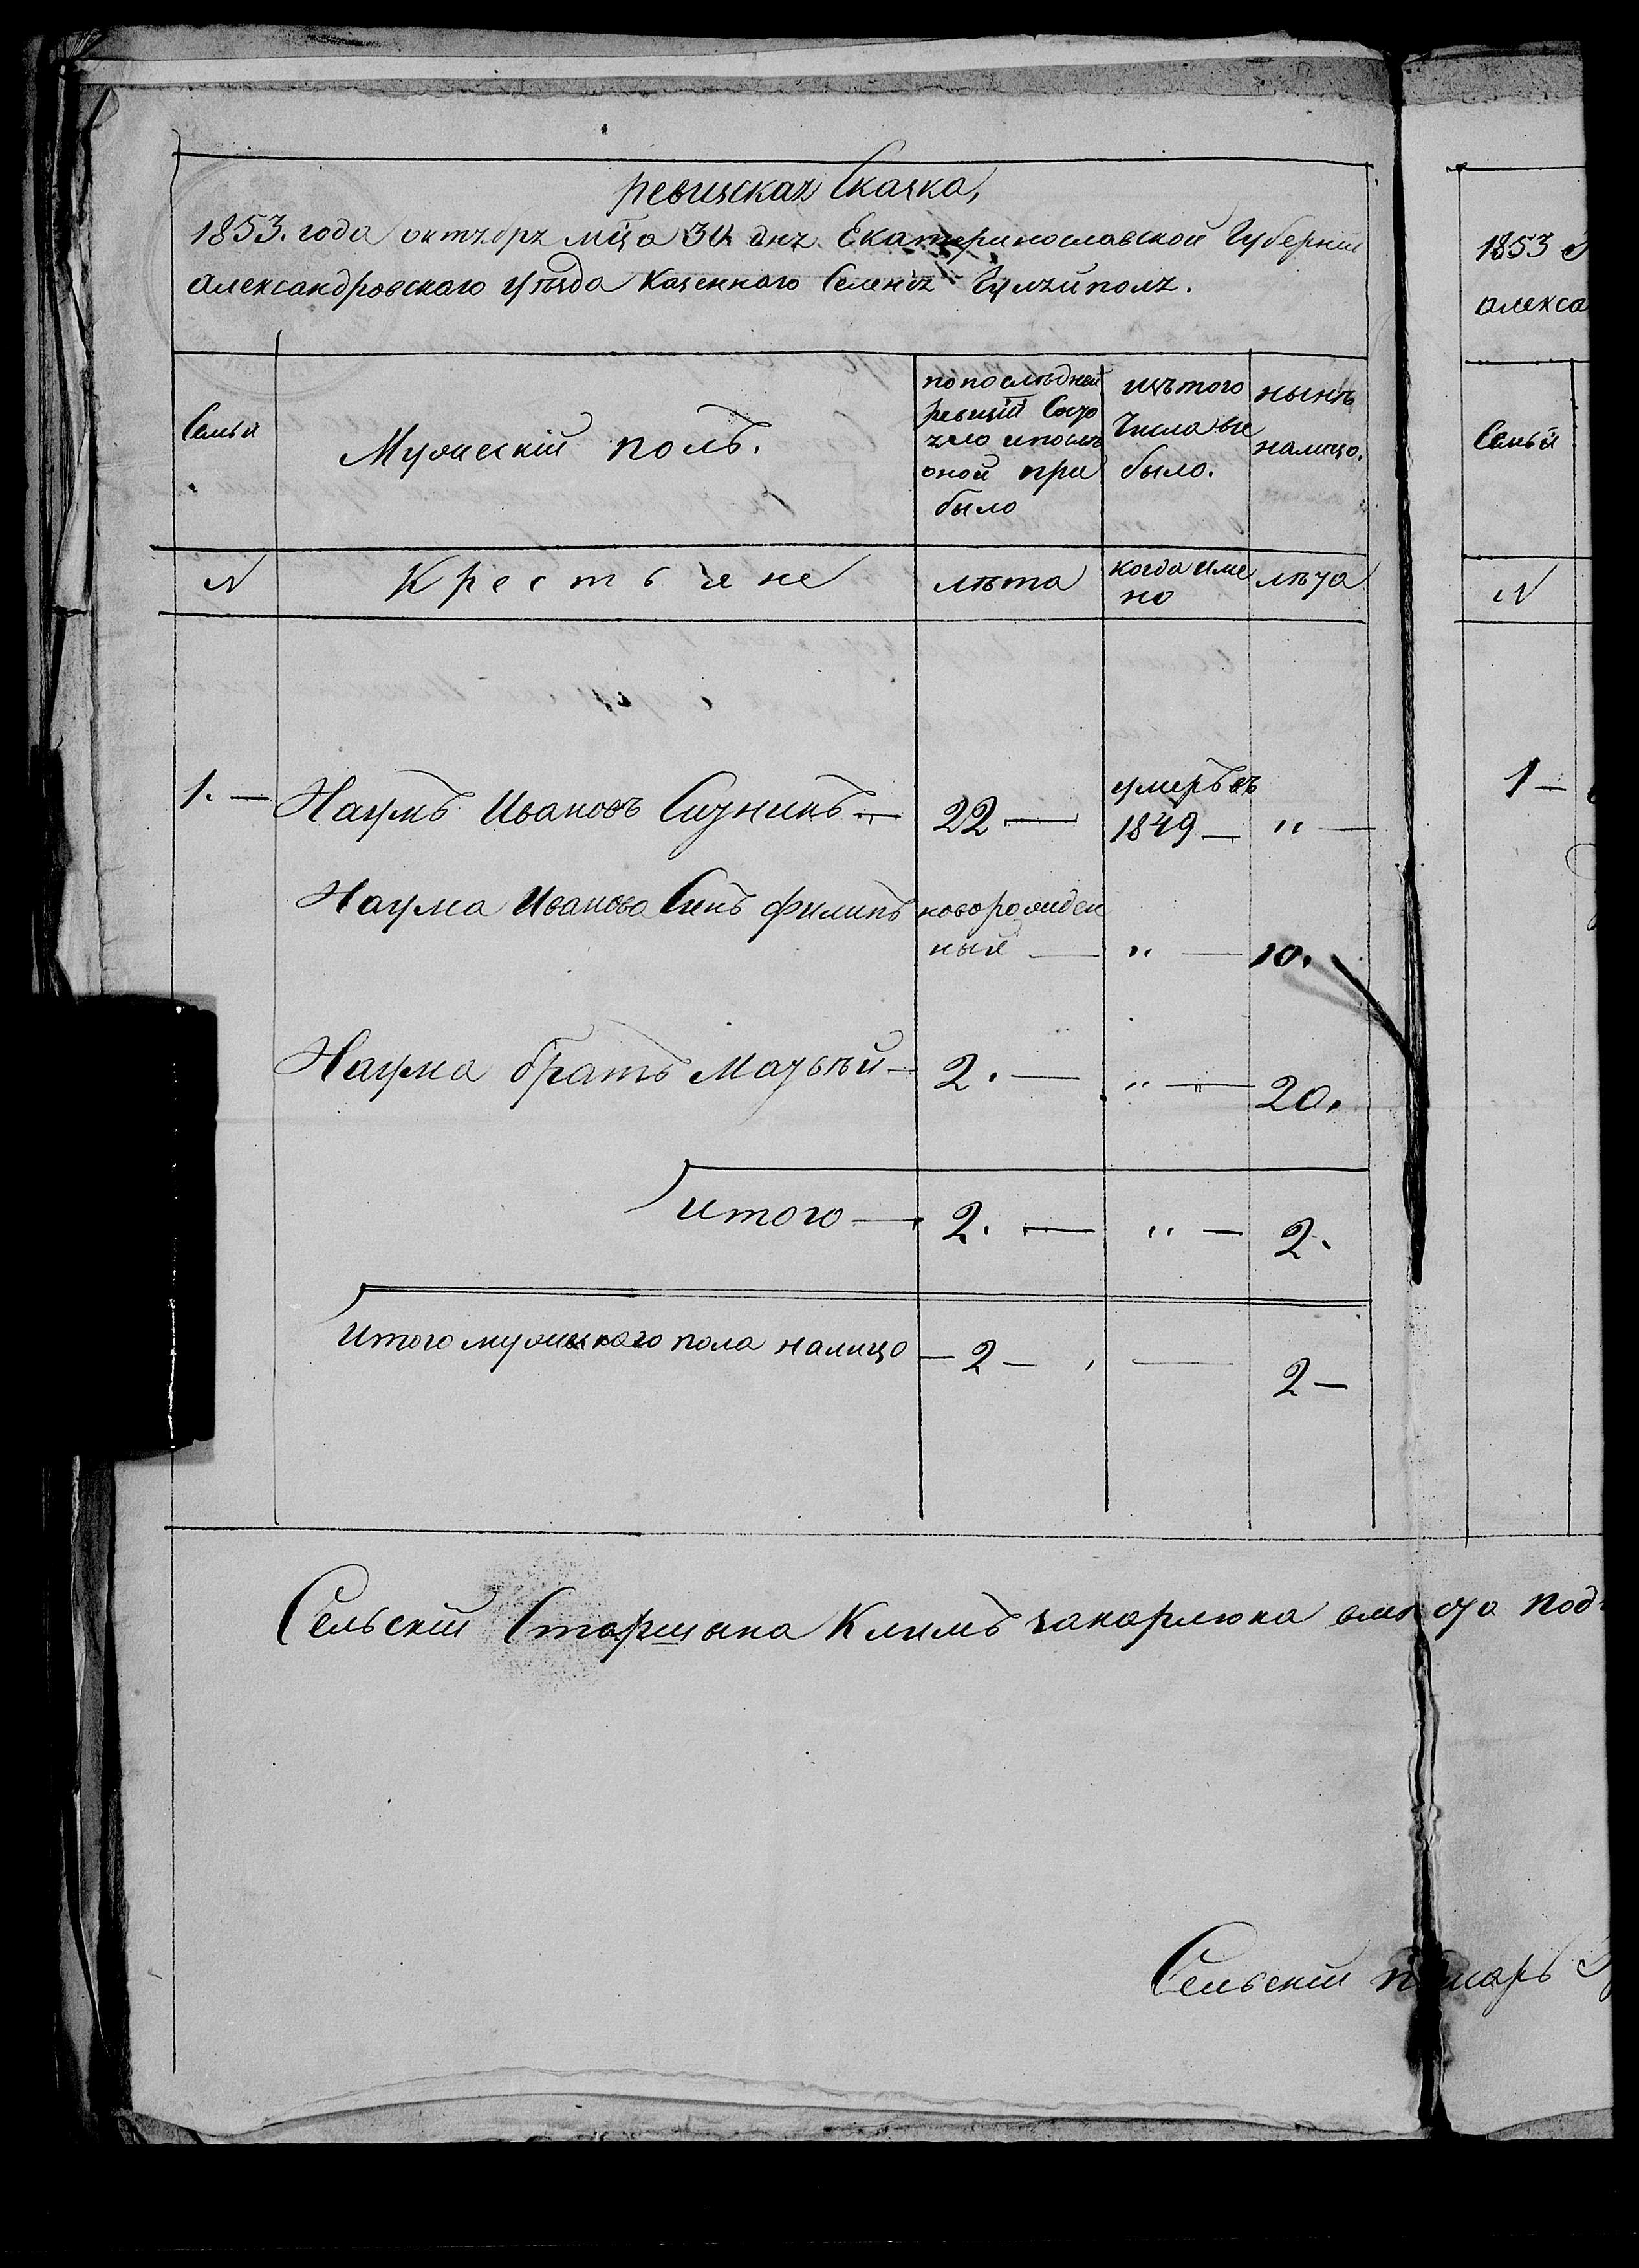 ревизская Сказка,
1853. года октября мца 30 дня. Екатеринославской Губерніи
Александровского уѣзда Казенного Селенія Гуляйполя.
Семьи
Мужескій полъ.
по послѣдней
ревизіи Состо
яло и послѣ
оной при
было
изъ того
Числа вы
было.
нынѣ
налицо.
N
Крестьяне
лѣта
когда имe
но
лѣта
1. —
Наумъ Ивановъ —
22 —
умеръ въ
1849 —
" —
Наума Иванова Синъ Филипъ
новорожден
ный —
" —
10.
Наума братъ Матвѣй —
2. —
" —
20.
Итого —
2. —
" —
2.
Итого мужецкаго пола налицо
— 2 —
—
2 —
Сельскій Старшына Климъ
Сельскій
1853
алекса
Семьи
N
1 —